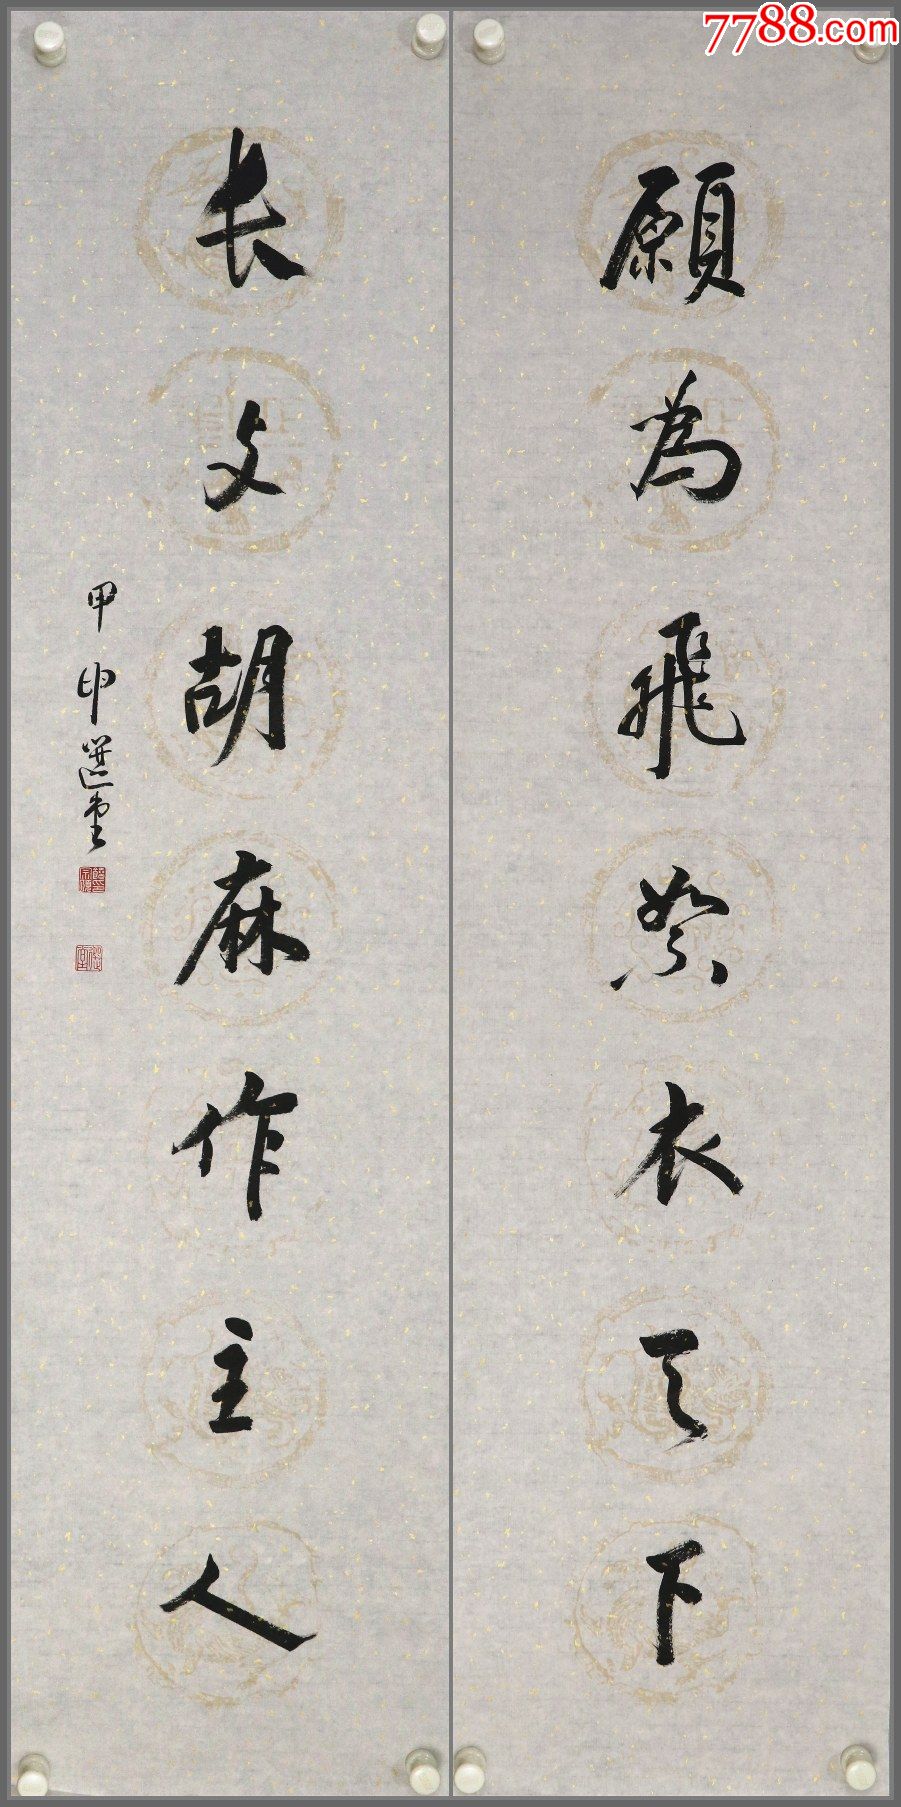 7788.com
願為飛絮衣天下
长文胡麻作主人
甲申選堂